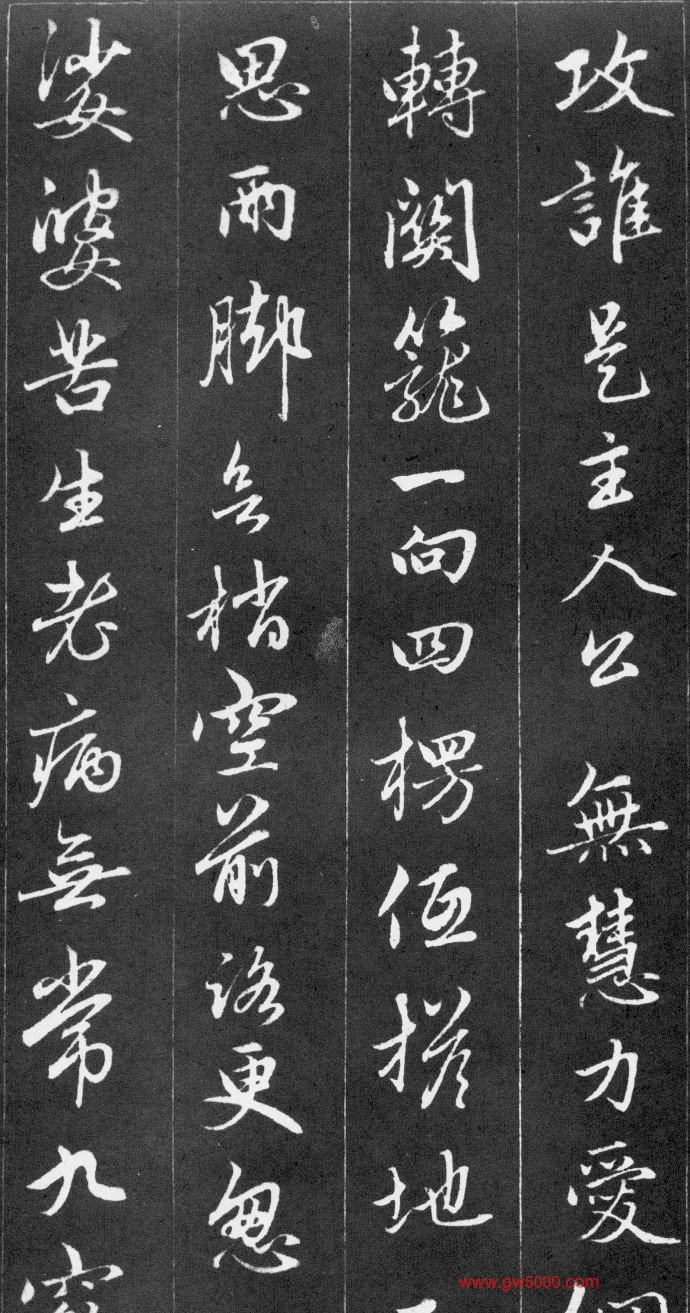 攻誰是主人公 無慧力愛
轉關籠一向四楞 地
思兩脚無梢空前路更怱
娑婆苦生老病無常九
www.gw5000.com